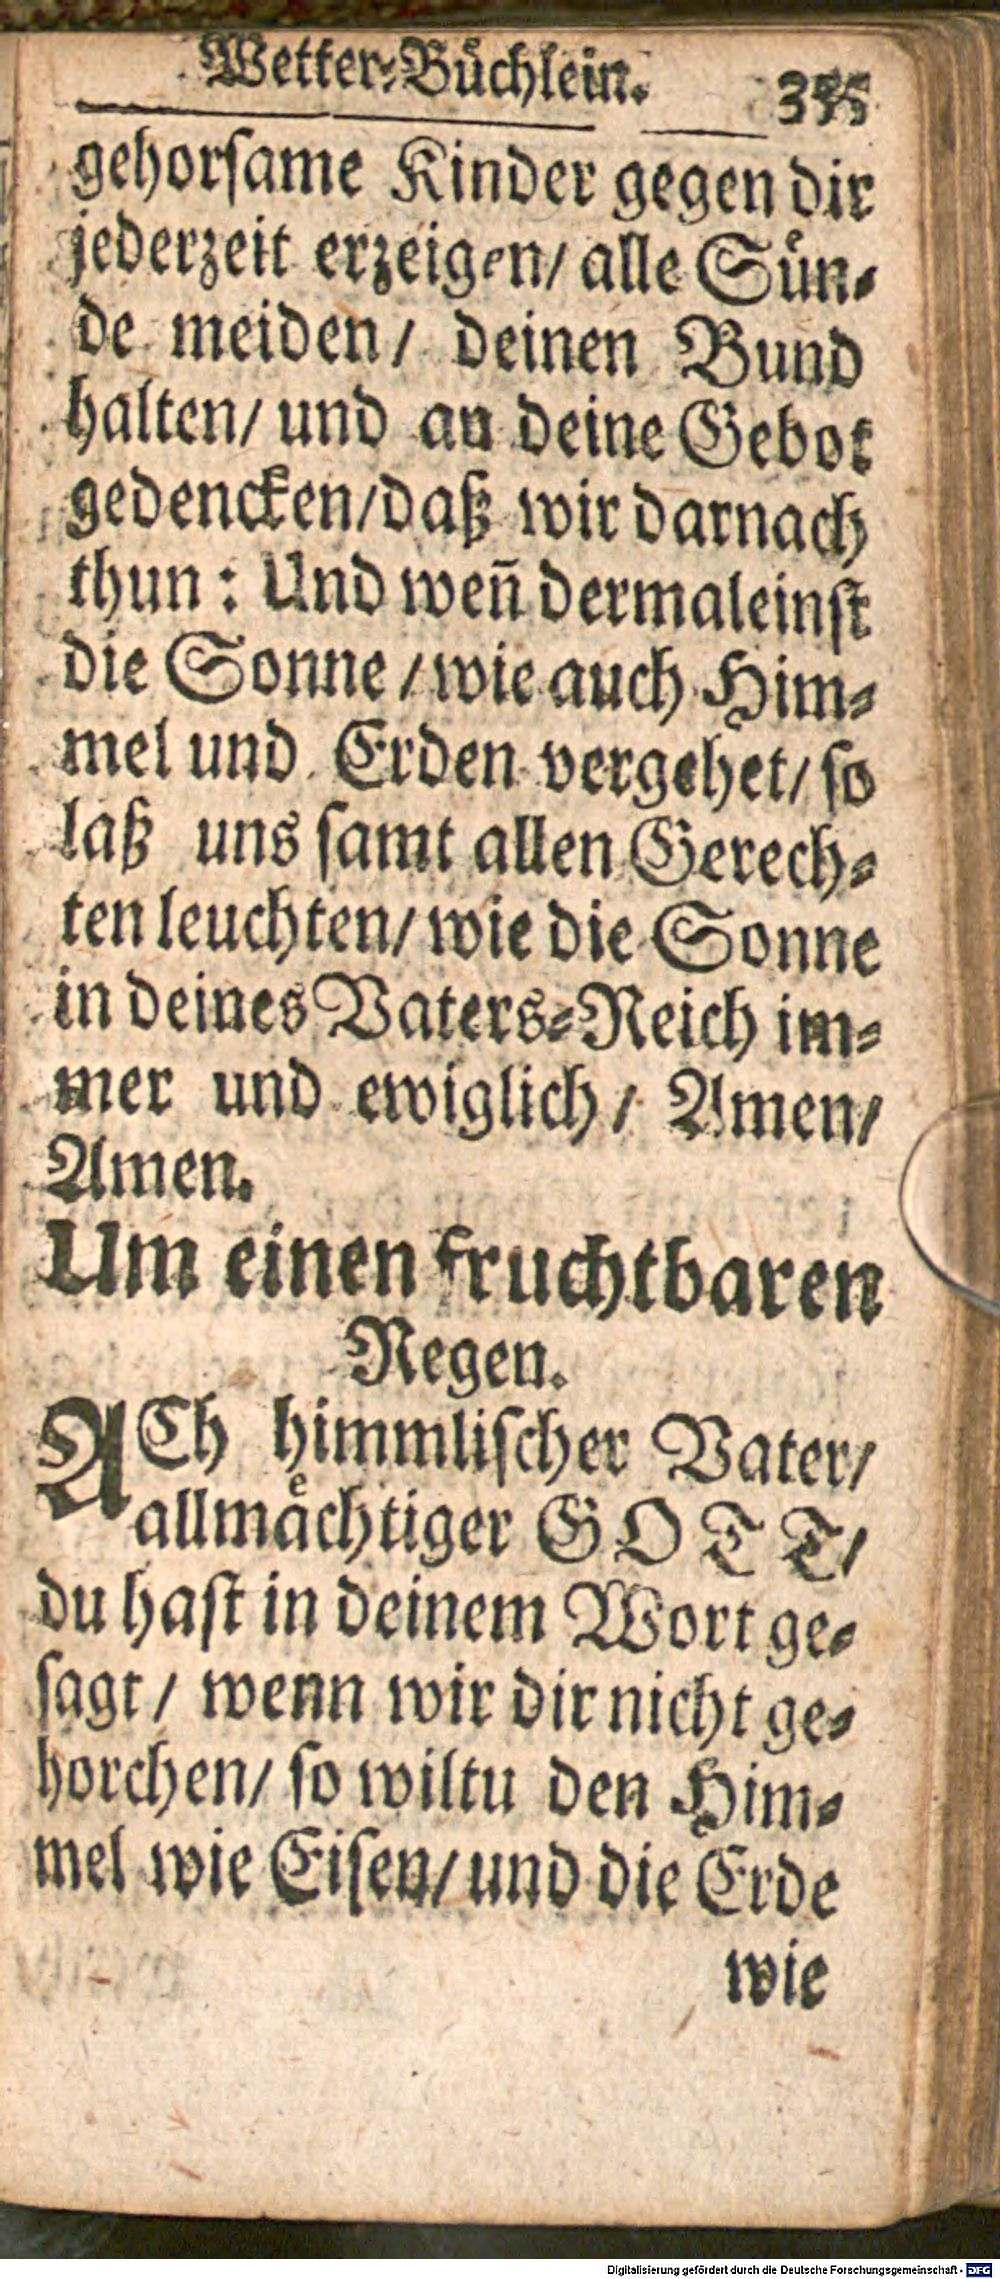 Wetter-Bůchlein. 355
gehorſame Kinder gegen dir
jederzeit erzeigen/ alle Sůn-
de meiden/ deinen Bund
halten/ und an deine Gebot
gedencken/daß wir darnach
thun: Und weñ dermaleinſt
die Sonne / wie auch Him-
mel und Erden vergehet/ ſo
laß uns ſamt allen Gerech-
ten leuchten/ wie die Sonne
in deines Vaters-Reich im-
mer und ewiglich/ Amen/
Amen.
Um einen fruchtbaren
Regen.
ACh himmliſcher Vater/
allmaͤchtiger GOTT/
du haſt in deinem Wort ge-
ſagt/ wenn wir dir nicht ge-
horchen/ ſo wiltu den Him-
mel wie Eiſen/ und die Erde
wie
Digitalisierung gefördert durch die Deutsche Forschungsgemeinschaft - DFG